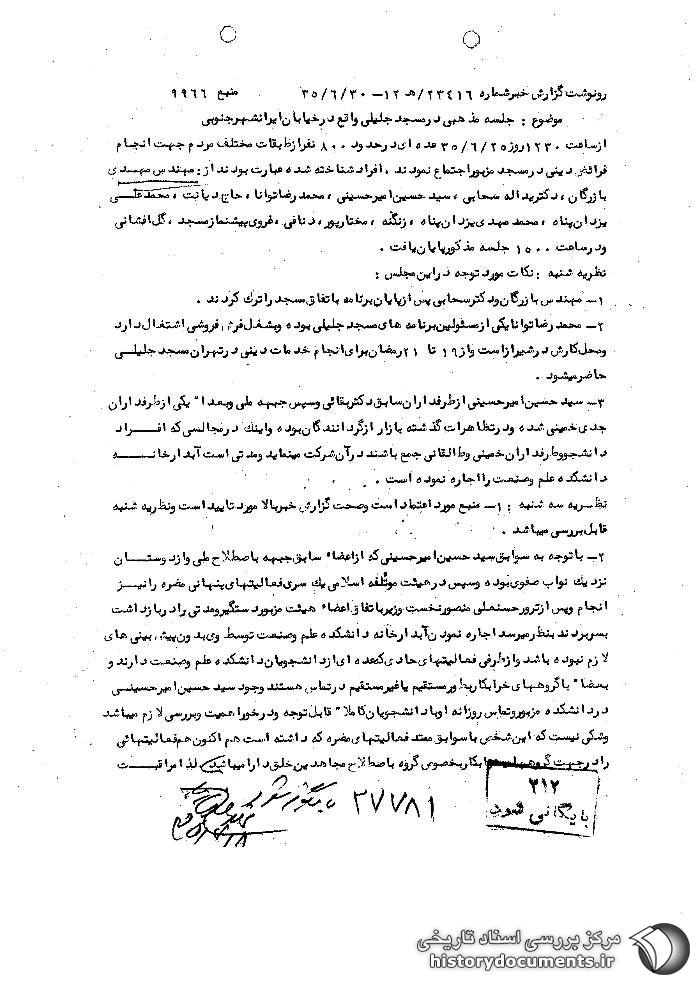 رونوشت گزارش خبرشماره ۲۳۴۱۶/ه ۱۲ – ۳۵/۶/۳۰ منبع ۹۹۶۶
موضوع : جلسه مذهبی در مسجد جلیلی واقع در خیابان ایرانشهر جنوبی
از ساعت ۱۲۳۰ روز ۳۵/۶/۲۵ عده ای در حدود ۸۰۰ نفر از طبقات مختلف مردم جهت انجام
فرائض دینی در مسجد مزبور اجتماع نمودند ، افراد شناخته شده عبارت بودند از : مهندس مهدی
بازرگان ، دکتر یداله سحابی ، سید حسین امیرحسینی ، محمد رضا توانا ، حاج دیانت ، محمد علی
یزدان پناه ، محمد مهدی یزدان پناه ، زنگنه ، مختارپور ، دنافی ، غروی پیشنماز مسجد ، گل افشانی
و در ساعت ۱۵۰۰ جلسه مذکور پایان یافت .
نظریه شنبه : نکات مورد توجه در این مجلس :
۱– مهندس بازرگان و دکتر سحابی پس از پایان برنامه باتفاق مسجد را ترک کردند .
۲– محمد رضا توانا یکی از مسئولین برنامه های مسجد جلیلی بوده و بشغل فرش فروشی اشتغال دارد
و محل کارش در شیراز است و از ۱۹ تا ۲۱ رمضان برای انجام خدمات دینی در تهران مسجد جلیلی
حاضر میشود .
۳– سید حسین امیرحسینی از طرفداران سابق دکتر بقائی و سپس جبهه ملی و بعداً یکی از طرفداران
جدی خمینی شده و در تظاهرات گذشته بازار از گردانندگان بوده و اینک در مجالسی که افراد
دانشجو و طرفداران خمینی و طالقانی جمع باشند در آن شرکت مینماید و مدتی است آبدارخانه
دانشکده علم و صنعت را اجاره نموده است .
نظریه سه شنبه : ۱– منبع مورد اعتماد است و صحت گزارش خبر بالا مورد تایید است و نظریه شنبه
قابل بررسی میباشد .
۲– با توجه به سوابق سید حسین امیرحسینی که از اعضاء سابق جبهه باصطلاح ملی و از دوستان
نزدیک نواب صفوی بوده و سپس در هیئت موتلفه اسلامی یک سری فعالیتهای پنهانی مضره را نیز
انجام و پس از ترور حسنعلی منصور نخست وزیر باتفاق اعضاء هیئت مزبور دستگیر و مدتی را در بازداشت
بسر بردند بنظر میرسد اجاره نمودن آبدارخانه دانشکده علم و صنعت توسط وی بدون پیش بینی های
لازم نبوده باشد و از طرفی فعالیتهای حادی که عده ای از دانشجویان دانشکده علم و صنعت دارند و
بعضاً با گروههای خرابکار بطور مستقیم یا غیر مستقیم در تماس هستند وجود سید حسین امیرحسینی
در دانشکده مزبور و تماس روزانه او با دانشجویان کاملاً قابل توجه و در خور اهمیت و بررسی لازم میباشد
و شکی نیست که این شخص با سوابق ممتد فعالیتهای مضره که داشته است هم اکنون هم فعالیتهائی
را در جهت گروههای خرابکار بخصوص گروه باصطلاح مجاهدین خلق دارا میباشد لذا مراقبت
۳۱۲
بایگانی شود
۲۷۷۸۱
مرکز بررسی اسناد تاریخی
historydocuments.ir